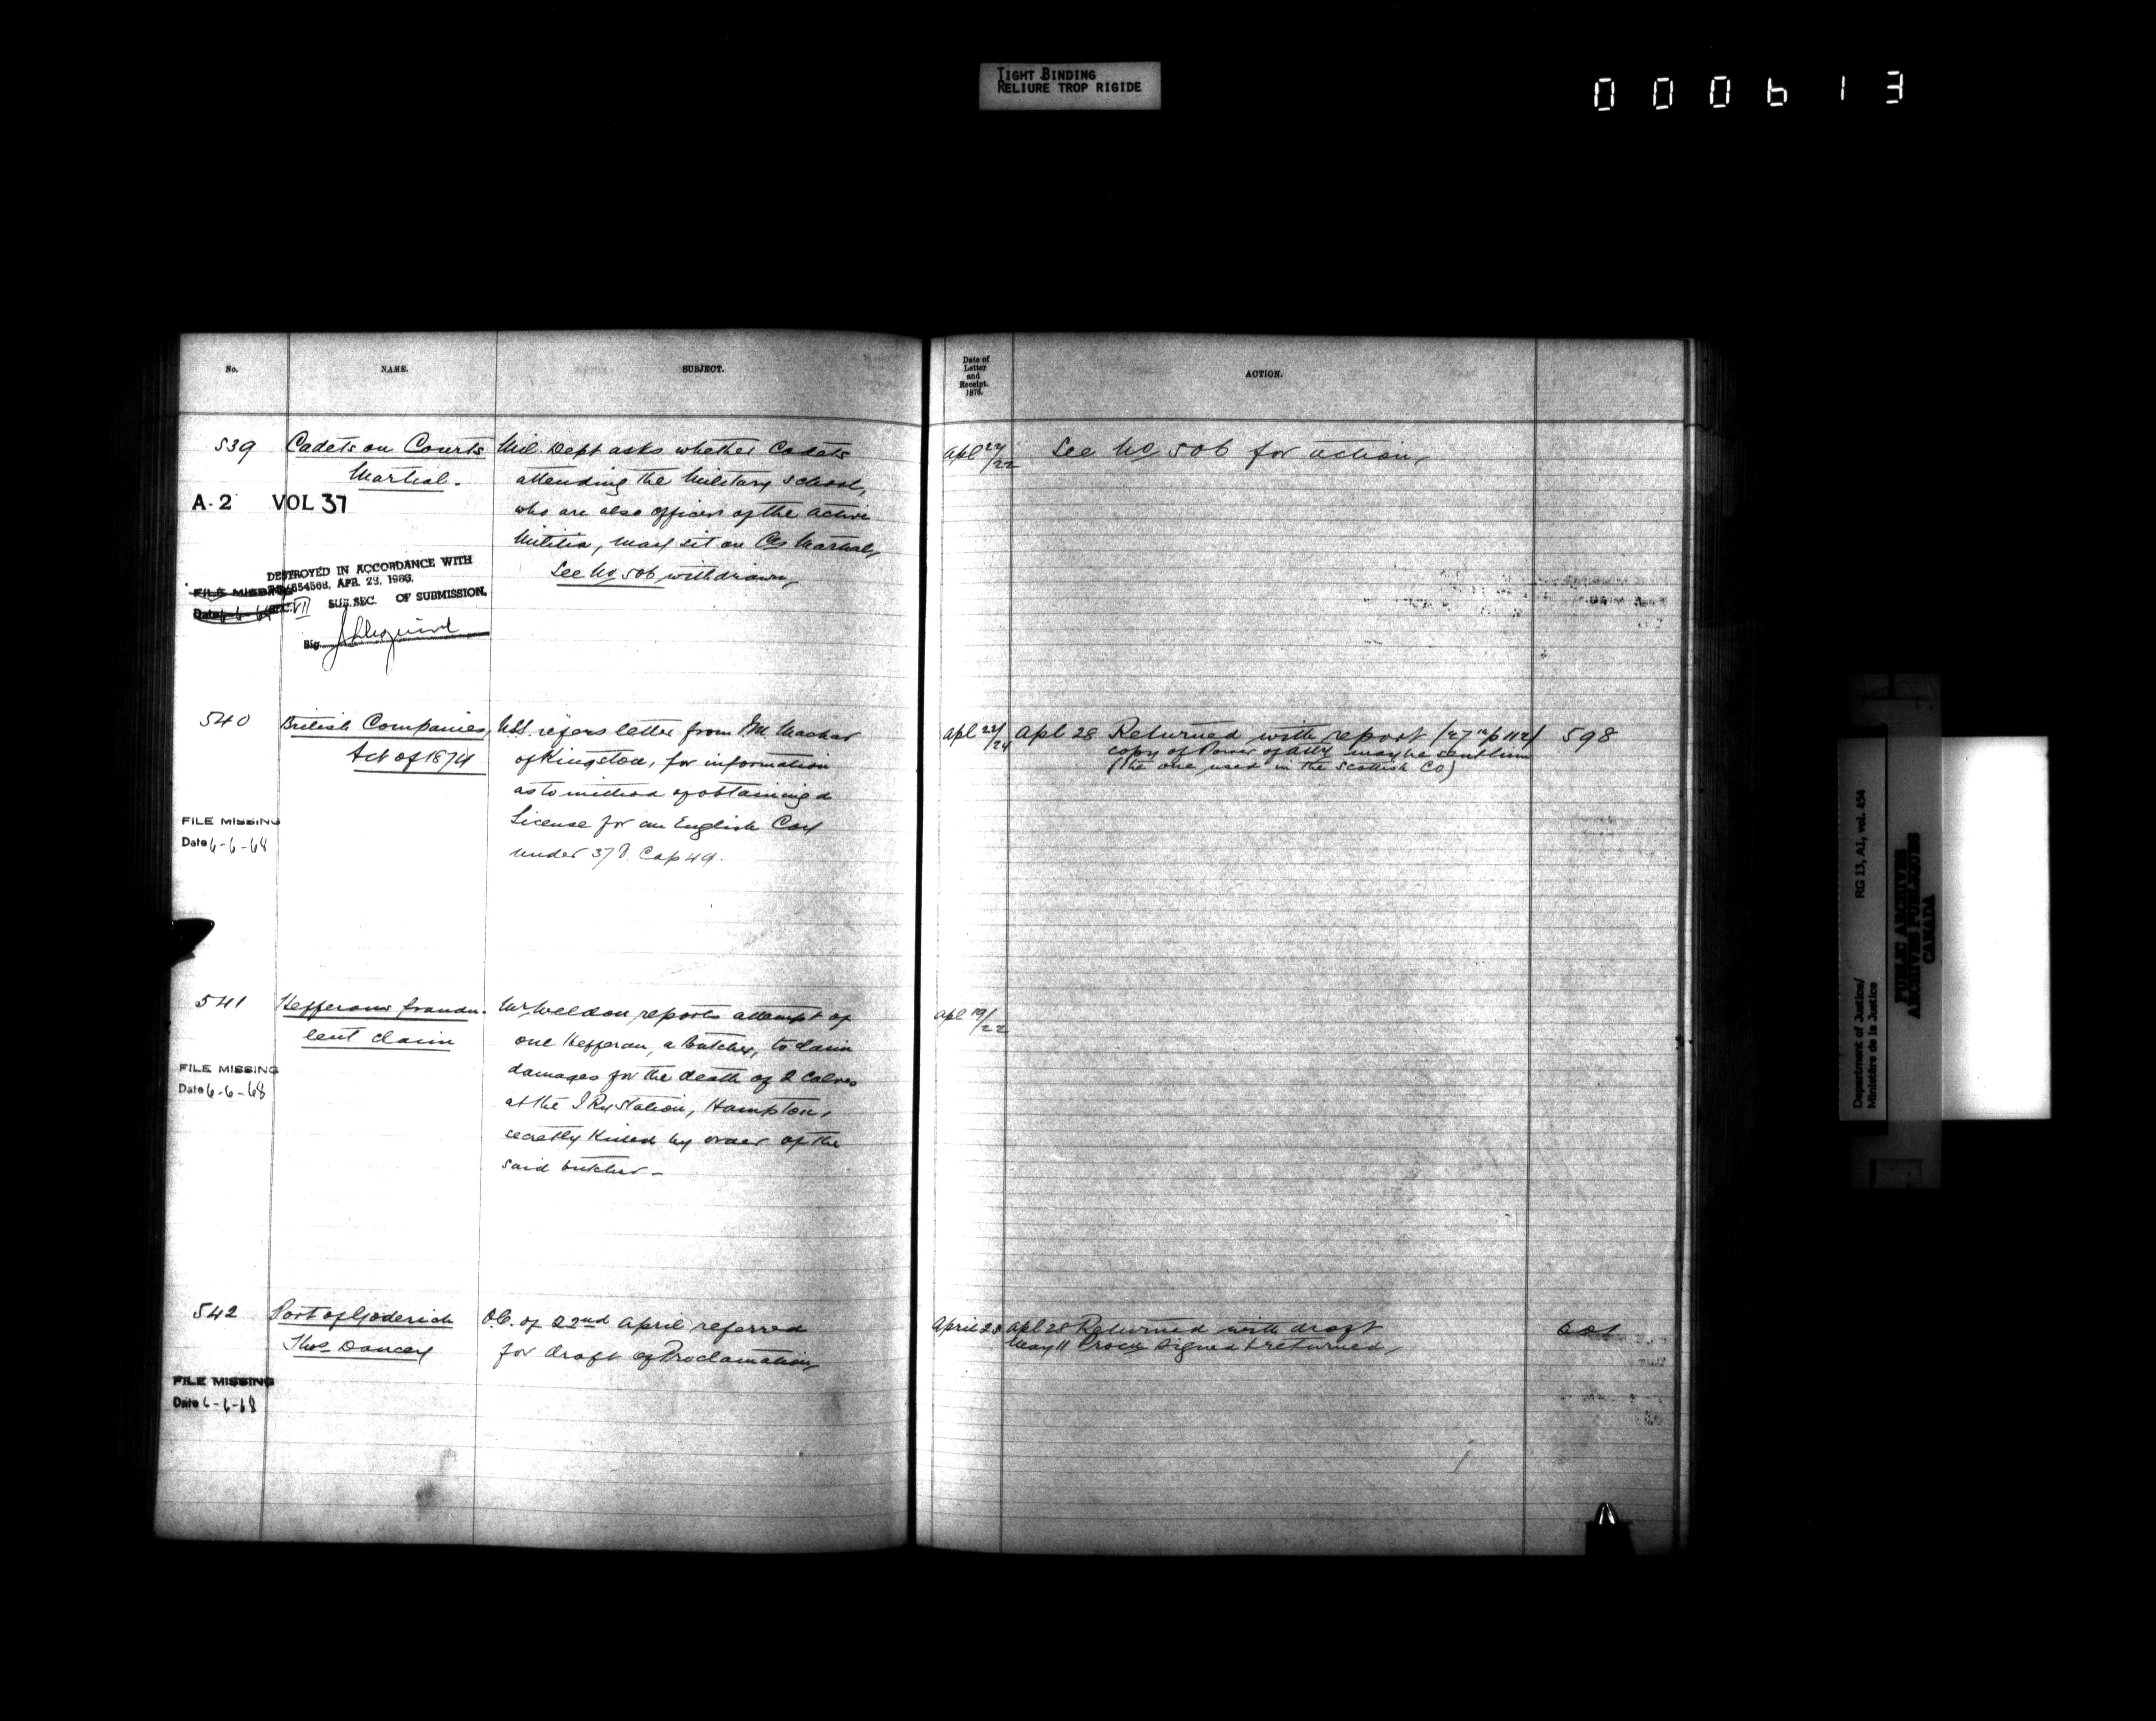 TIGHT BINDING
RELIURE TROP RIGIDE
000613
No. NAME. SUBJECT.
539 Cadets on Courts Martial.
Mil. Dept asks whether Cadets
attending the Military School,
who are also officers of the Active
Militia, may sit on Cts Martial,
See No 506 withdrawn,
A-2 VOL 37
DESTROYED IN ACCORDANCE WITH
654568, APR. 23, 1963.
VII SUB.SEC. OF SUBMISSION.
FILE MISSING
Date 6-6-68
Sig.
540 British Companies,
Act of 1874
U.S.S. refers letter from J.M. Machar
of Kingston, for information
as to method of obtaining a
License for an English Coy
under 37 V. Cap 49.
FILE MISSING
Date 6-6-68
541 Hefferans fraudu-
lent claim
Mr Weldon reports attempt of
one Hefferan, a Butcher, to claim
damages for the death of 2 Calves
at the I Ry Station, Hampton,
secretly Killed by order of the
said butcher -
FILE MISSING
Date 6-6-68
542 Port of Goderich
Thos Dancey
O.C. of 22nd April referred
for draft of Proclamation,
FILE MISSING
Date 6-6-68
Date of
Letter
and
Receipt.
1876.
ACTION.
Apl 22/22 See No 506 for action,
Apl 22/24 Apl 28 Returned with report (27 p 112) 598
copy of Power of Atty may be sent him
(the one used in the Scottish Co)
Apl 19/22
April 28 Apl 28 Returned with draft
May 11 Procn signed & returned,
Department of Justice/ RG 13, A1, vol. 454
Ministère de la Justice
PUBLIC ARCHIVES
ARCHIVES PUBLIQUES
CANADA